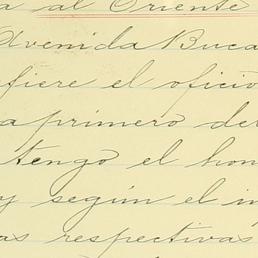 a al Oriente
Avenida Buca
fiere el oficio
a primero de
tengo el hon
y según el in
as respectivas